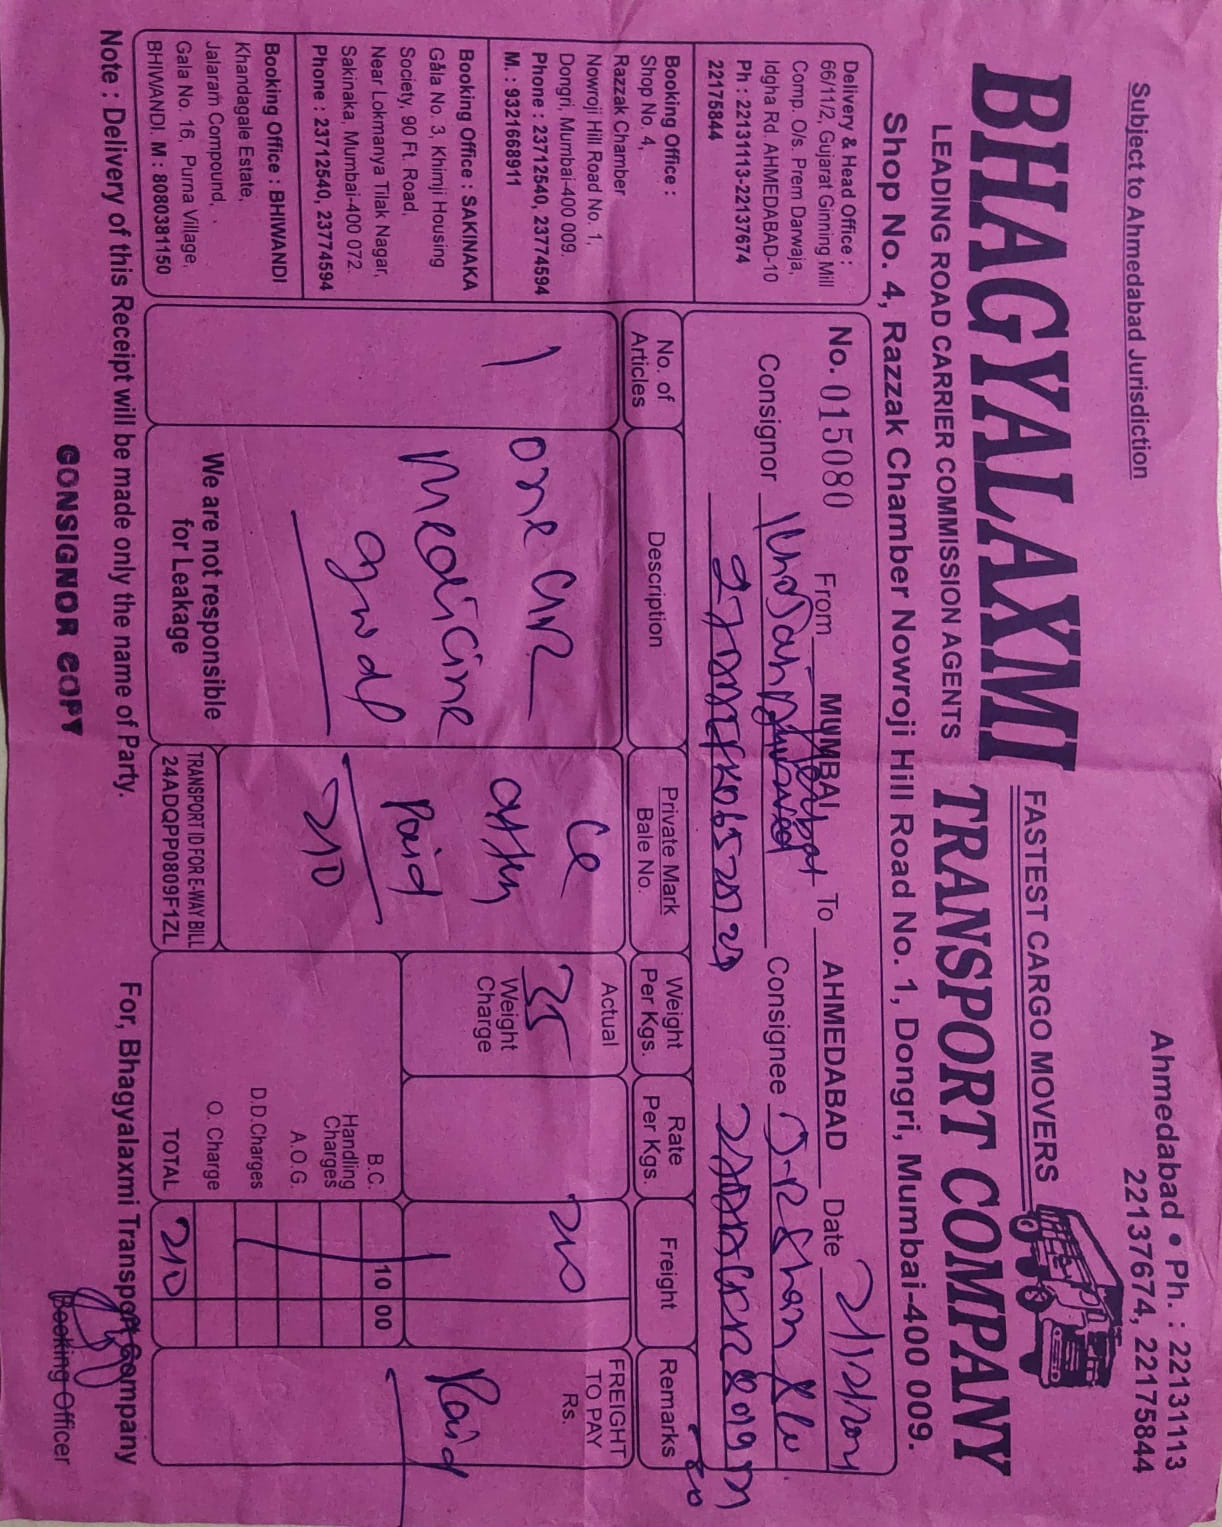 Subject to Ahmedabad Jurisdiction
Ahmedabad • Ph. : 22131113
22137674, 22175844
BHAGYALAXMI
FASTEST CARGO MOVERS
TRANSPORT COMPANY
LEADING ROAD CARRIER COMMISSION AGENTS
Shop No. 4, Razzak Chamber Nowroji Hill Road No. 1, Dongri, Mumbai-400 009.
Delivery & Head Office :
66/11/2, Gujarat Ginning Mill
Comp. O/s. Prem Darwaja,
Idgha Rd. AHMEDABAD-10
Ph : 22131113-22137674
22175844
Booking Office :
Shop No. 4,
Razzak Chamber
Nowroji Hill Road No. 1,
Dongri, Mumbai-400 009.
Phone : 23712540, 23774594
M. : 9321668911
Booking Office : SAKINAKA
Gala No. 3, Khimji Housing
Society, 90 Ft. Road,
Near Lokmanya Tilak Nagar,
Sakinaka, Mumbai-400 072.
Phone : 23712540, 23774594
Booking Office : BHIWANDI
Khandagale Estate,
Jalaram Compound,
Gala No. 16, Purna Village,
BHIWANDI. M : 8080381150
No. 015080 From MUMBAI To AHMEDABAD Date
Consignor Consignee
No. of Articles
Description
Private Mark Bale No.
Weight Per Kgs.
Rate Per Kgs.
Freight
Remarks
1
one
Medicine
Paid
210
Actual
35
Weight Charge
200
FREIGHT TO PAY
Rs.
Paid
B.C. 10 00
Handling Charges
A.O.G.
D.D.Charges
O. Charge
TOTAL 210
We are not responsible
for Leakage
TRANSPORT ID FOR E-WAY BILL
24ADQPP0809F1ZL
Note : Delivery of this Receipt will be made only the name of Party.
For, Bhagyalaxmi Transport Company
CONSIGNOR COPY
Booking Officer